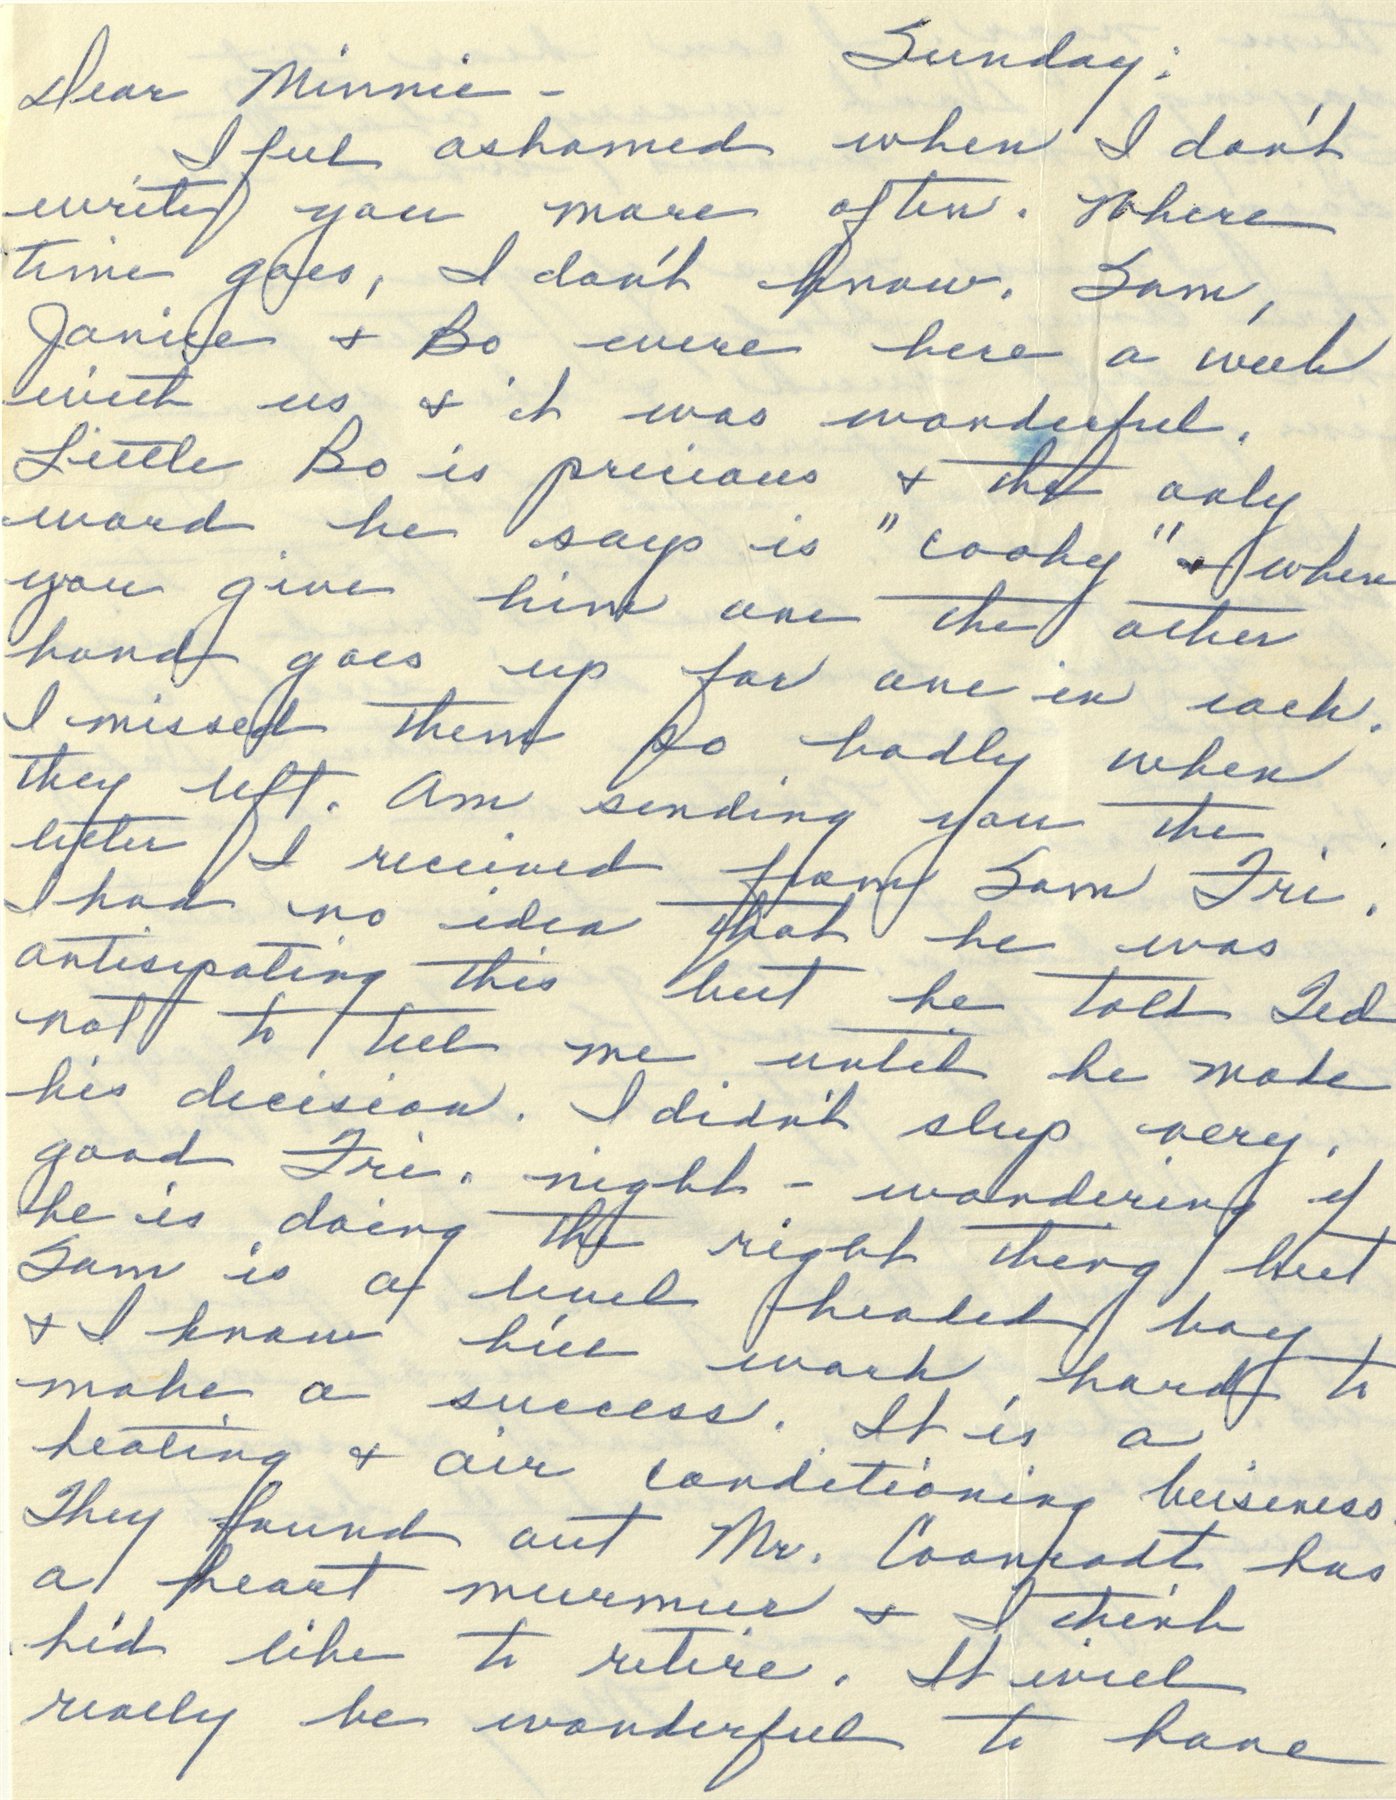 Sunday:
Dear Minnie -
I feel ashamed when I don't
write you more often. Where
time goes, I don't know. Sam,
Janice & Bo were here a week
with us & it was wonderful.
Little Bo is precious & the only
word he says is "cooky" & when
you give him one the other
hand goes up for one in each.
I missed them so badly when
they left. Am sending you the
letter I received from Sam Fri.
I had no idea that he was
anticipating this but he told Ted
not to tell me until he made
his decision. I didn't sleep very
good Fri. night - wondering if
he is doing the right thing but
Sam is a level headed boy
& I know he'll work hard to
make a success. It is a
heating & air conditioning business.
They found out Mr. Coonradt has
a heart murmur & I think
he'd like to retire. It will
really be wonderful to have